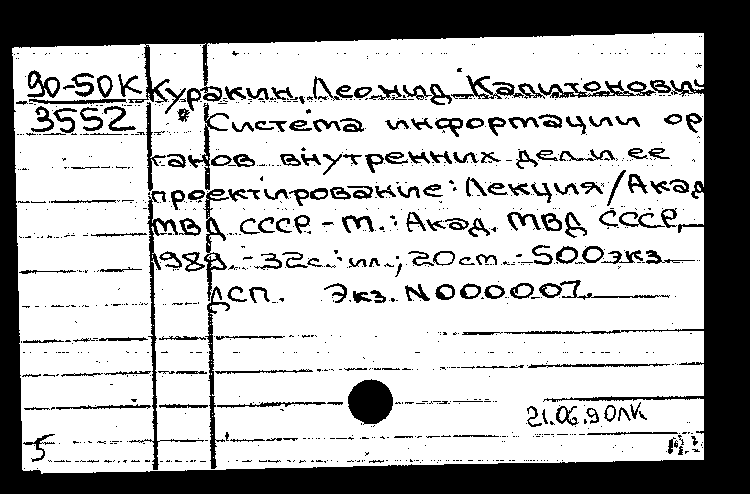 90-50К Куракин, Леонид Капитонович
3552 * Система информации ор
ганов внутренних дел и ее
проектирование: Лекция/Акад
МВД СССР. - М.: Акад. МВД СССР,
1989. - 32с.: ил.; 20 см. - 500 экз.
ДСП. Экз. N000007.
21.06.90ЛК
5